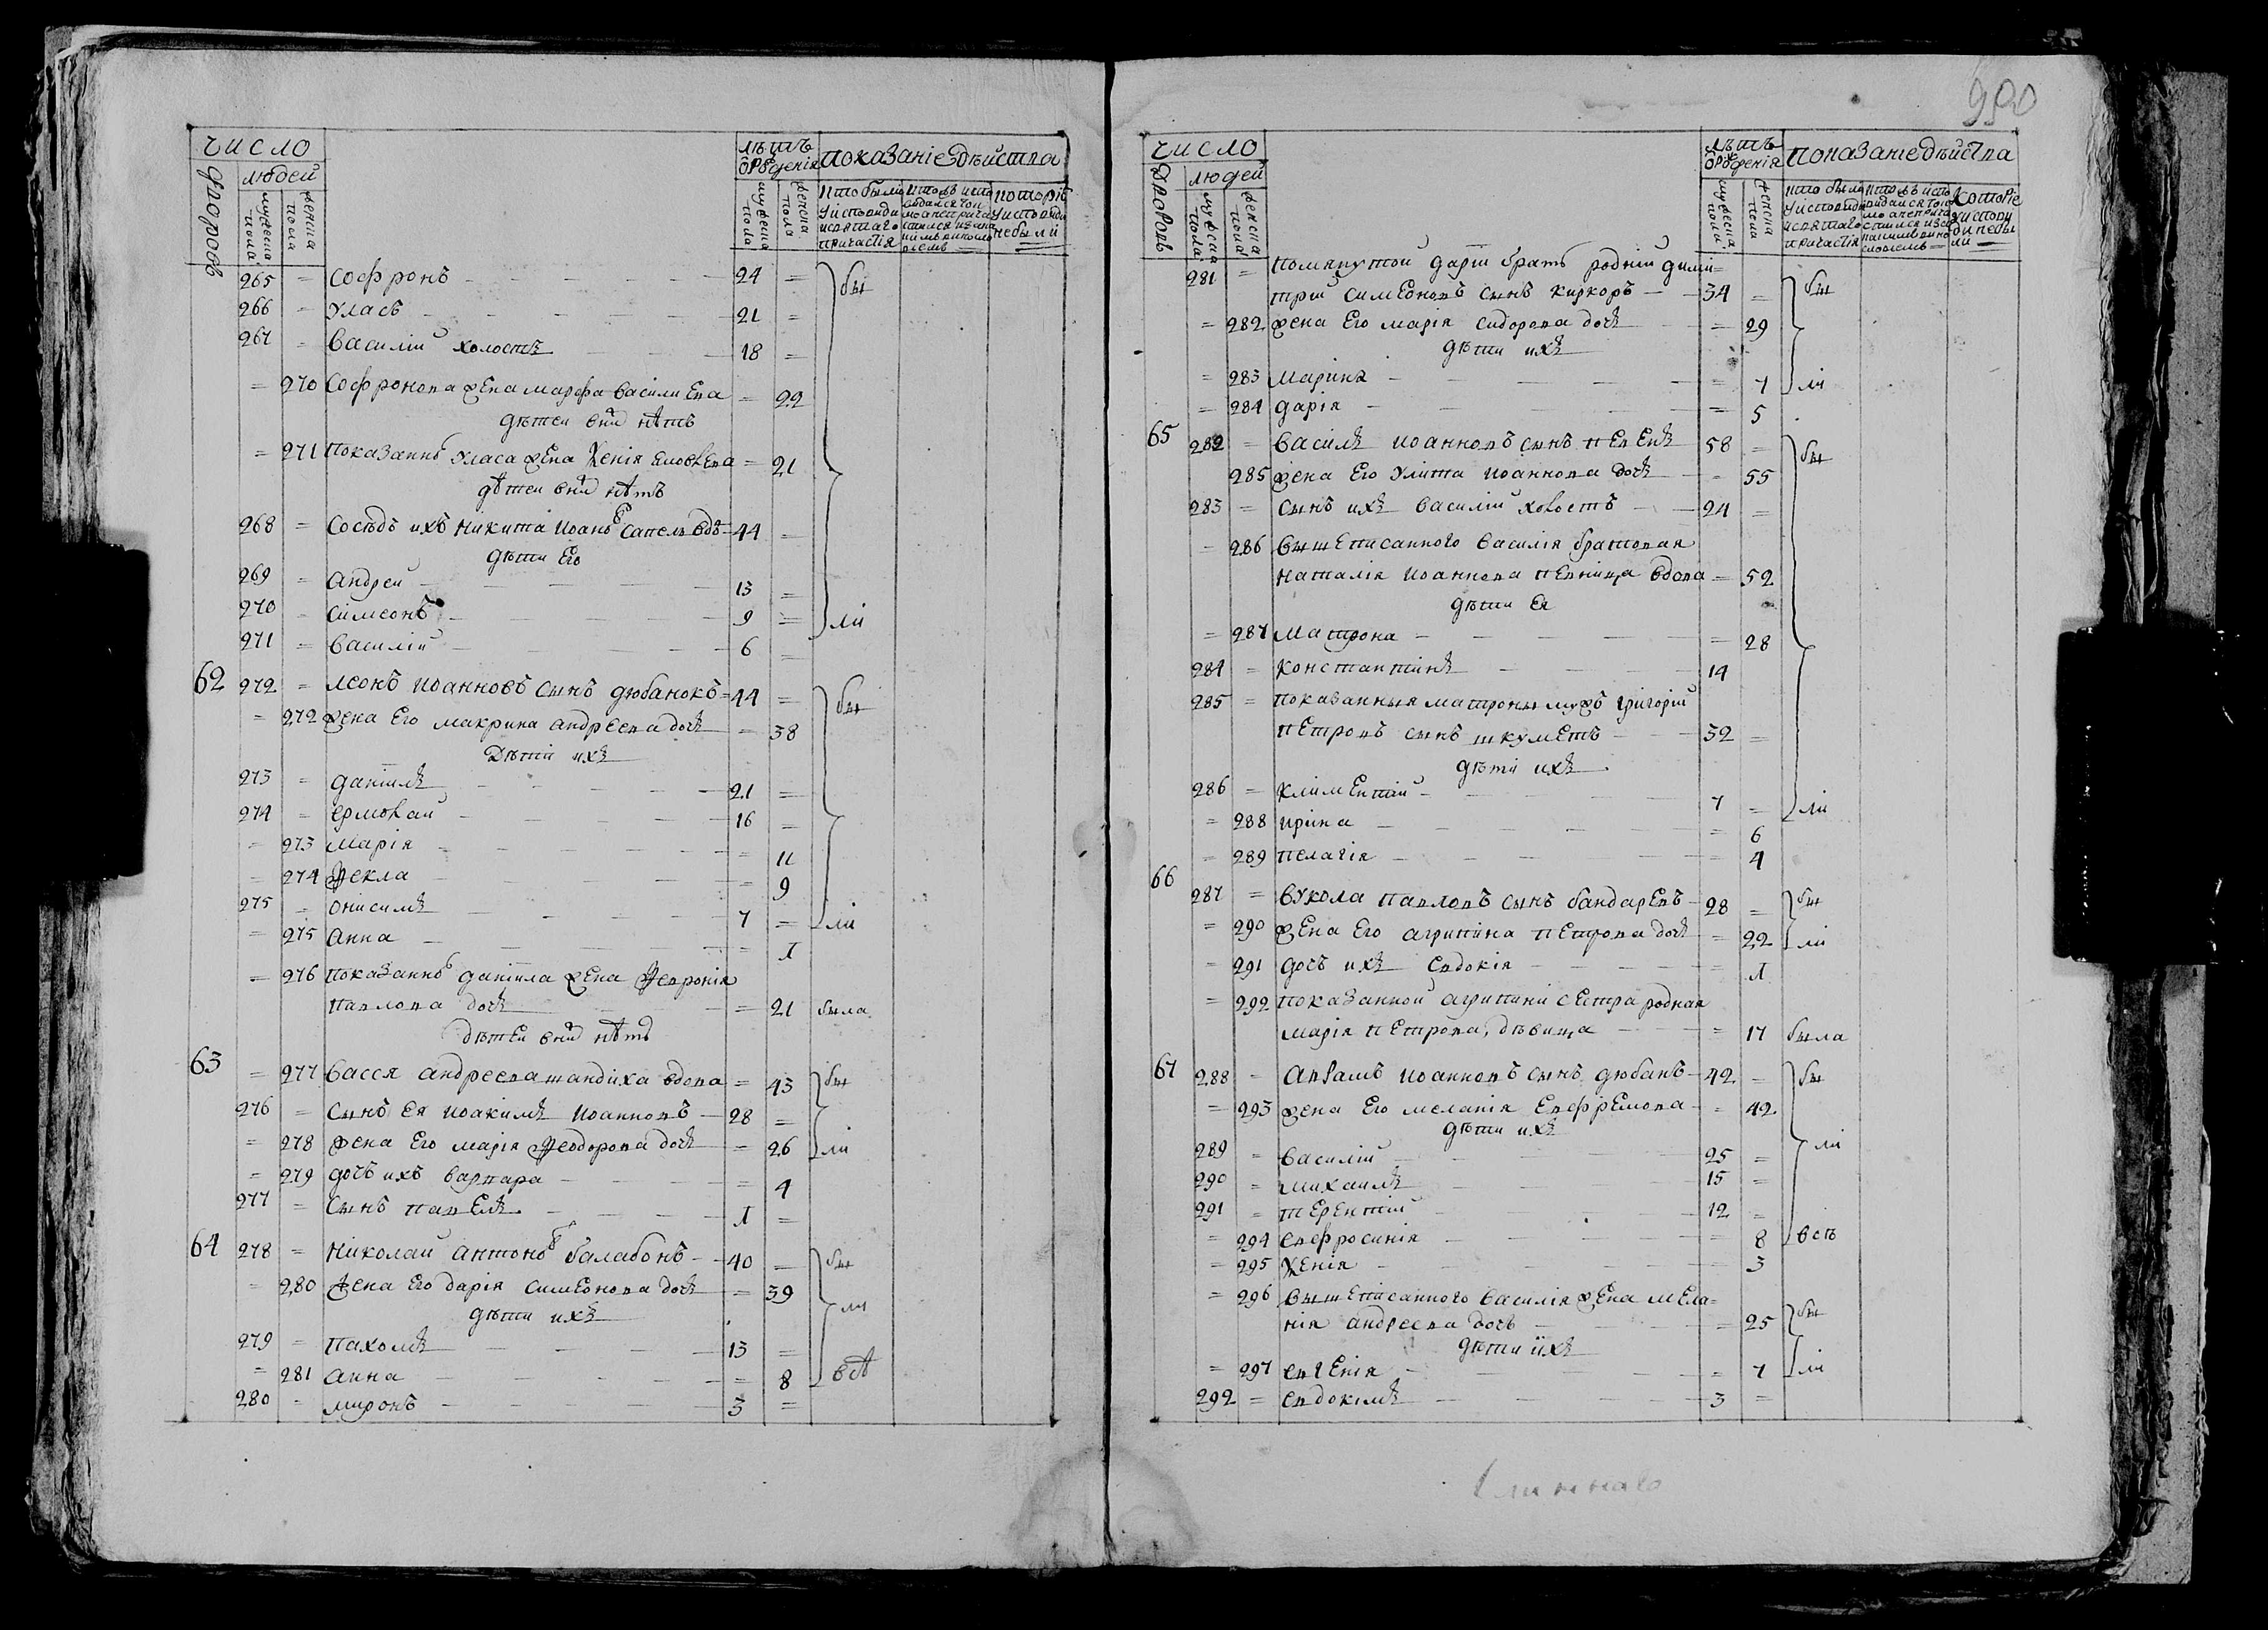 число
дворовъ
людей
мужеска пола
женска пола
лѣтъ
ѿ рожденія
мужеска пола
женска пола
показаніе дѣйства
265 = Софронъ 24 =
266 = Уласъ 21 =
267 = Василій холостъ 18 =
= 270 Софронова жена Марфа Василиева = 22
дѣтей в них нѣтъ
= 271 показанно Уласа жена Ксенія = 21
дѣтей в них нѣтъ
268 = Сосѣдъ ихъ Никита Иоанов 44 =
дѣти Его
269 = Андрей 13 =
270 = Симеонъ 9 =
271 = Василій 6 =
бы
ли
62 272 = Леонъ Иоанновъ сынъ Дюбанокъ 44 =
= 272 жена Его Макрина Андреева дочь = 38
Дѣти ихъ
273 = Даніилъ 21 =
274 = Ермолай 16 =
= 273 Марія = 11
= 274 Фекла = 9
275 = Онисимъ 7 =
= 275 Анна = 1
бы
ли
= 276 показанно Даніила жена Февронія
Павлова дочь = 21 была
дѣтей в них нѣтъ
63 = 277 Васся Андреева Шандиха вдова = 43
276 = Сынъ Ея Иоакимъ Иоанновъ 28 =
= 278 жена Его Марія Феодорова дочь = 26
= 279 дочь ихъ Варвара = 4
277 = Сынъ Павелъ 1 =
бы
ли
64 278 = Николай Антоно Балабонъ 40 =
= 280 жена Его Дарія Симеонова дочь = 39
дѣти ихъ
279 = Пахомъ 13 =
= 281 Анна = 8
280 = Миронъ 3 =
бы
ли
всѣ
990
число
дворовъ
людей
мужеска пола
женска пола
лѣтъ
ѿ рожденія
мужеска пола
женска пола
показаніе дѣйства
281 = Помянутой Даріи братъ родній Дими=
трій Симеоновъ сынъ Киркоръ 34 =
= 282 жена Его Марія Сидорова дочь = 29
дѣти ихъ
= 283 Марина = 7
= 284 Дарія = 5
бы
ли
65 282 = Василь Иоанновъ сынъ Певень 58 =
285 жена Его Улита Иоаннова дочь = 55
283 = Сынъ ихъ Василій холостъ 24 =
= 286 Вышеписанного Василія братовая
Наталія Иоаннова Певница вдова = 52
дѣти Ея
= 287 Матрона = 28
284 = Константинъ 14
285 = показанныя Матроны мужъ Григорій
Петровъ сынъ Шкуметъ 32 =
дѣти ихъ
286 = Климентій 7 =
= 288 Ирина = 6
= 289 Пелагія = 4
бы
ли
66 287 = Вукола Павловъ сынъ Бандаревъ 28 =
= 290 жена Его Агрипина Петрова дочь = 22
= 291 дочъ ихъ Евдокія = 1
бы
ли
= 292 показанной Агрипини сестра родная
Марія Петрова, дѣвица = 17 была
67 288 = Аврамъ Иоанновъ сынъ Дюбанъ 42 =
= 293 жена Его Меланія Евфремова = 42
дѣти ихъ
289 = Василій 25 =
290 = Михаилъ 15 =
291 = Терентій 12 =
= 294 Евфросинія = 8
= 295 Ксенія = 3
бы
ли
всѣ
= 296 Вышеписанного Василія жена Мела=
нія Андреева дочь = 25
дѣти ихъ
= 297 Евгенія = 7
292 = Евдокимъ 3 =
бы
ли